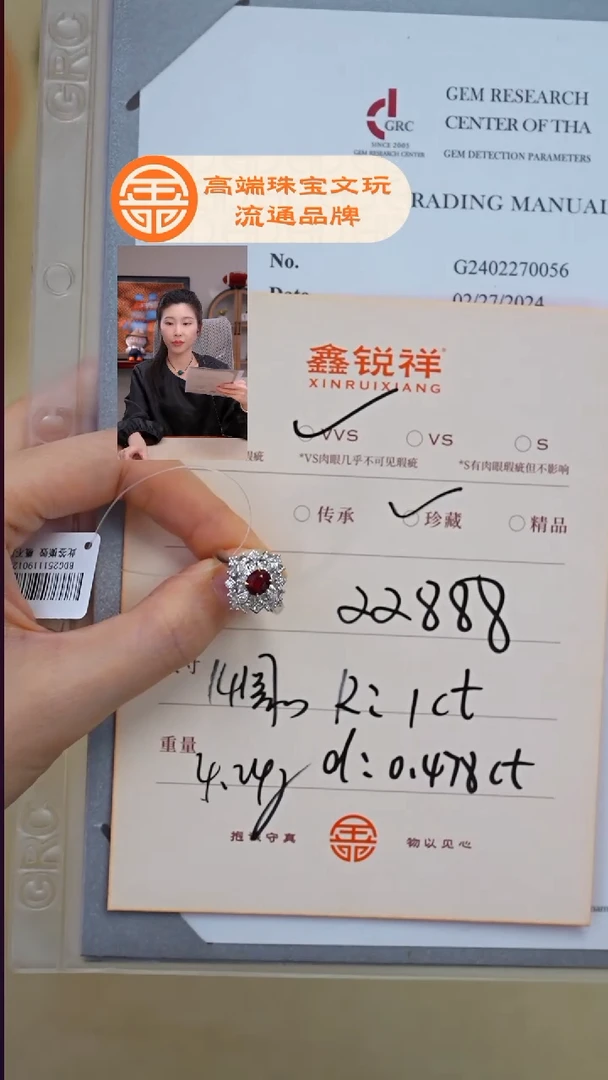 GRC
GEM RESEARCH
CENTER OF THA
GRC
SINCE 2005
GEM RESEARCH CENTER
GEM DETECTION PARAMETERS
高端珠宝文玩
流通品牌
RADING MANUAL
No.
G2402270056
Date
02/27/2024
鑫锐祥
XINRUIXIANG
VVS
VS
S
瑕疵
*VS肉眼几乎不可见瑕疵
*S有肉眼瑕疵但不影响
传承
珍藏
精品
BDC251119012
22888
寸
14
R: 1ct
重量
4.24g
d: 0.478ct
守真
物以见心
GRC